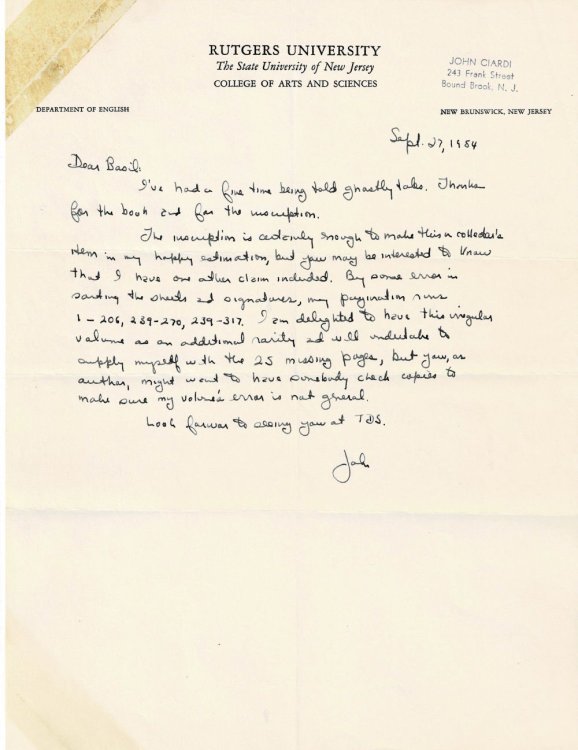 RUTGERS UNIVERSITY
The State University of New Jersey
COLLEGE OF ARTS AND SCIENCES
JOHN CIARDI
243 Frank Street
Bound Brook, N. J.
DEPARTMENT OF ENGLISH
NEW BRUNSWICK, NEW JERSEY
Sept. 27, 1954
Dear Basil:
I've had a fine time being told ghostly tales. Thanks
for the book and for the inscription.
The inscription is certainly enough to make this a collector's
item in my happy estimation, but you may be interested to know
that I have one other claim included. By some error in
sorting the sheets and signatures, my pagination runs
1 – 206, 239-270, 239-317. I am delighted to have this irregular
volume as an additional rarity and will undertake to
supply myself with the 25 missing pages, but you, as
author, might want to have somebody check copies to
make sure my volume's error is not general.
Look forward to seeing you at TDS.
John